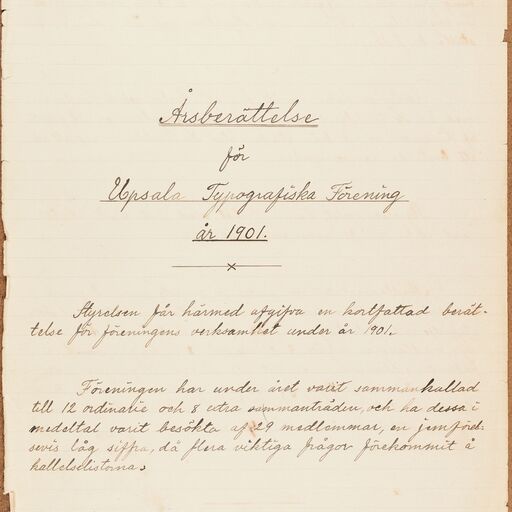 Årsberättelse
för
Upsala Typografiska Förening
år 1901.
Styrelsen får härmed afgifva en kortfattad berät-
telse för föreningens verksamhet under år 1901.
Föreningen har under året varit sammankallad
till 12 ordinarie och 8 extra sammanträden, och ha dessa i
medeltal varit besökta af 29 medlemmar, en jemförel-
sevis låg siffra, då flera viktiga frågor förekommit å
kallelselistorna.